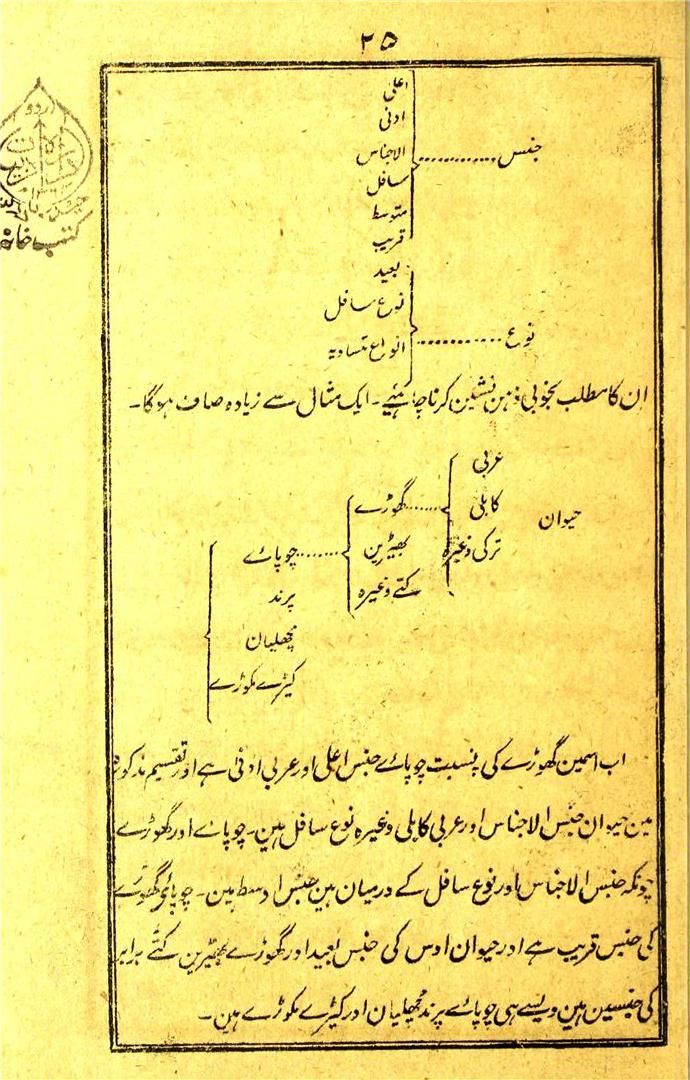 ۲۵
اعلی
ادنی
الاجناس
جنس............
سافل
متوسط
قریب
بعید
نوع سافل
نوع............
انواع متساویہ
ان کا مطلب بخوبی ذہن نشین کرنا چاہئیے۔ ایک مثال سے زیادہ صاف ہوگا۔
عربی
حیوان
کابلی
گھوڑے........
ترکی وغیرہ
بھیڑین
چوپائے........
کتے وغیرہ
پرند
مچھلیان
کیڑے مکوڑے
اب اسمین گھوڑے کی بنسبت چوپائے جنس اعلی اور عربی ادنی ہے اور تقسیم مذکورہ
مین حیوان جنس الاجناس اور عربی کابلی وغیرہ نوع سافل ہین۔ چوپائے اور گھوڑے
چونکہ جنس الاجناس اور نوع سافل کے درمیان ہین جنس اوسط ہین۔ چوپائے گھوڑے
کی جنس قریب ہے اور حیوان اوس کی جنس بعید اور گھوڑے بھیڑین کتے برابر
کی جنسین ہین ویسے ہی چوپائے پرند مچھلیان اور کیڑے مکوڑے ہین۔
اردو
کتب خانہ